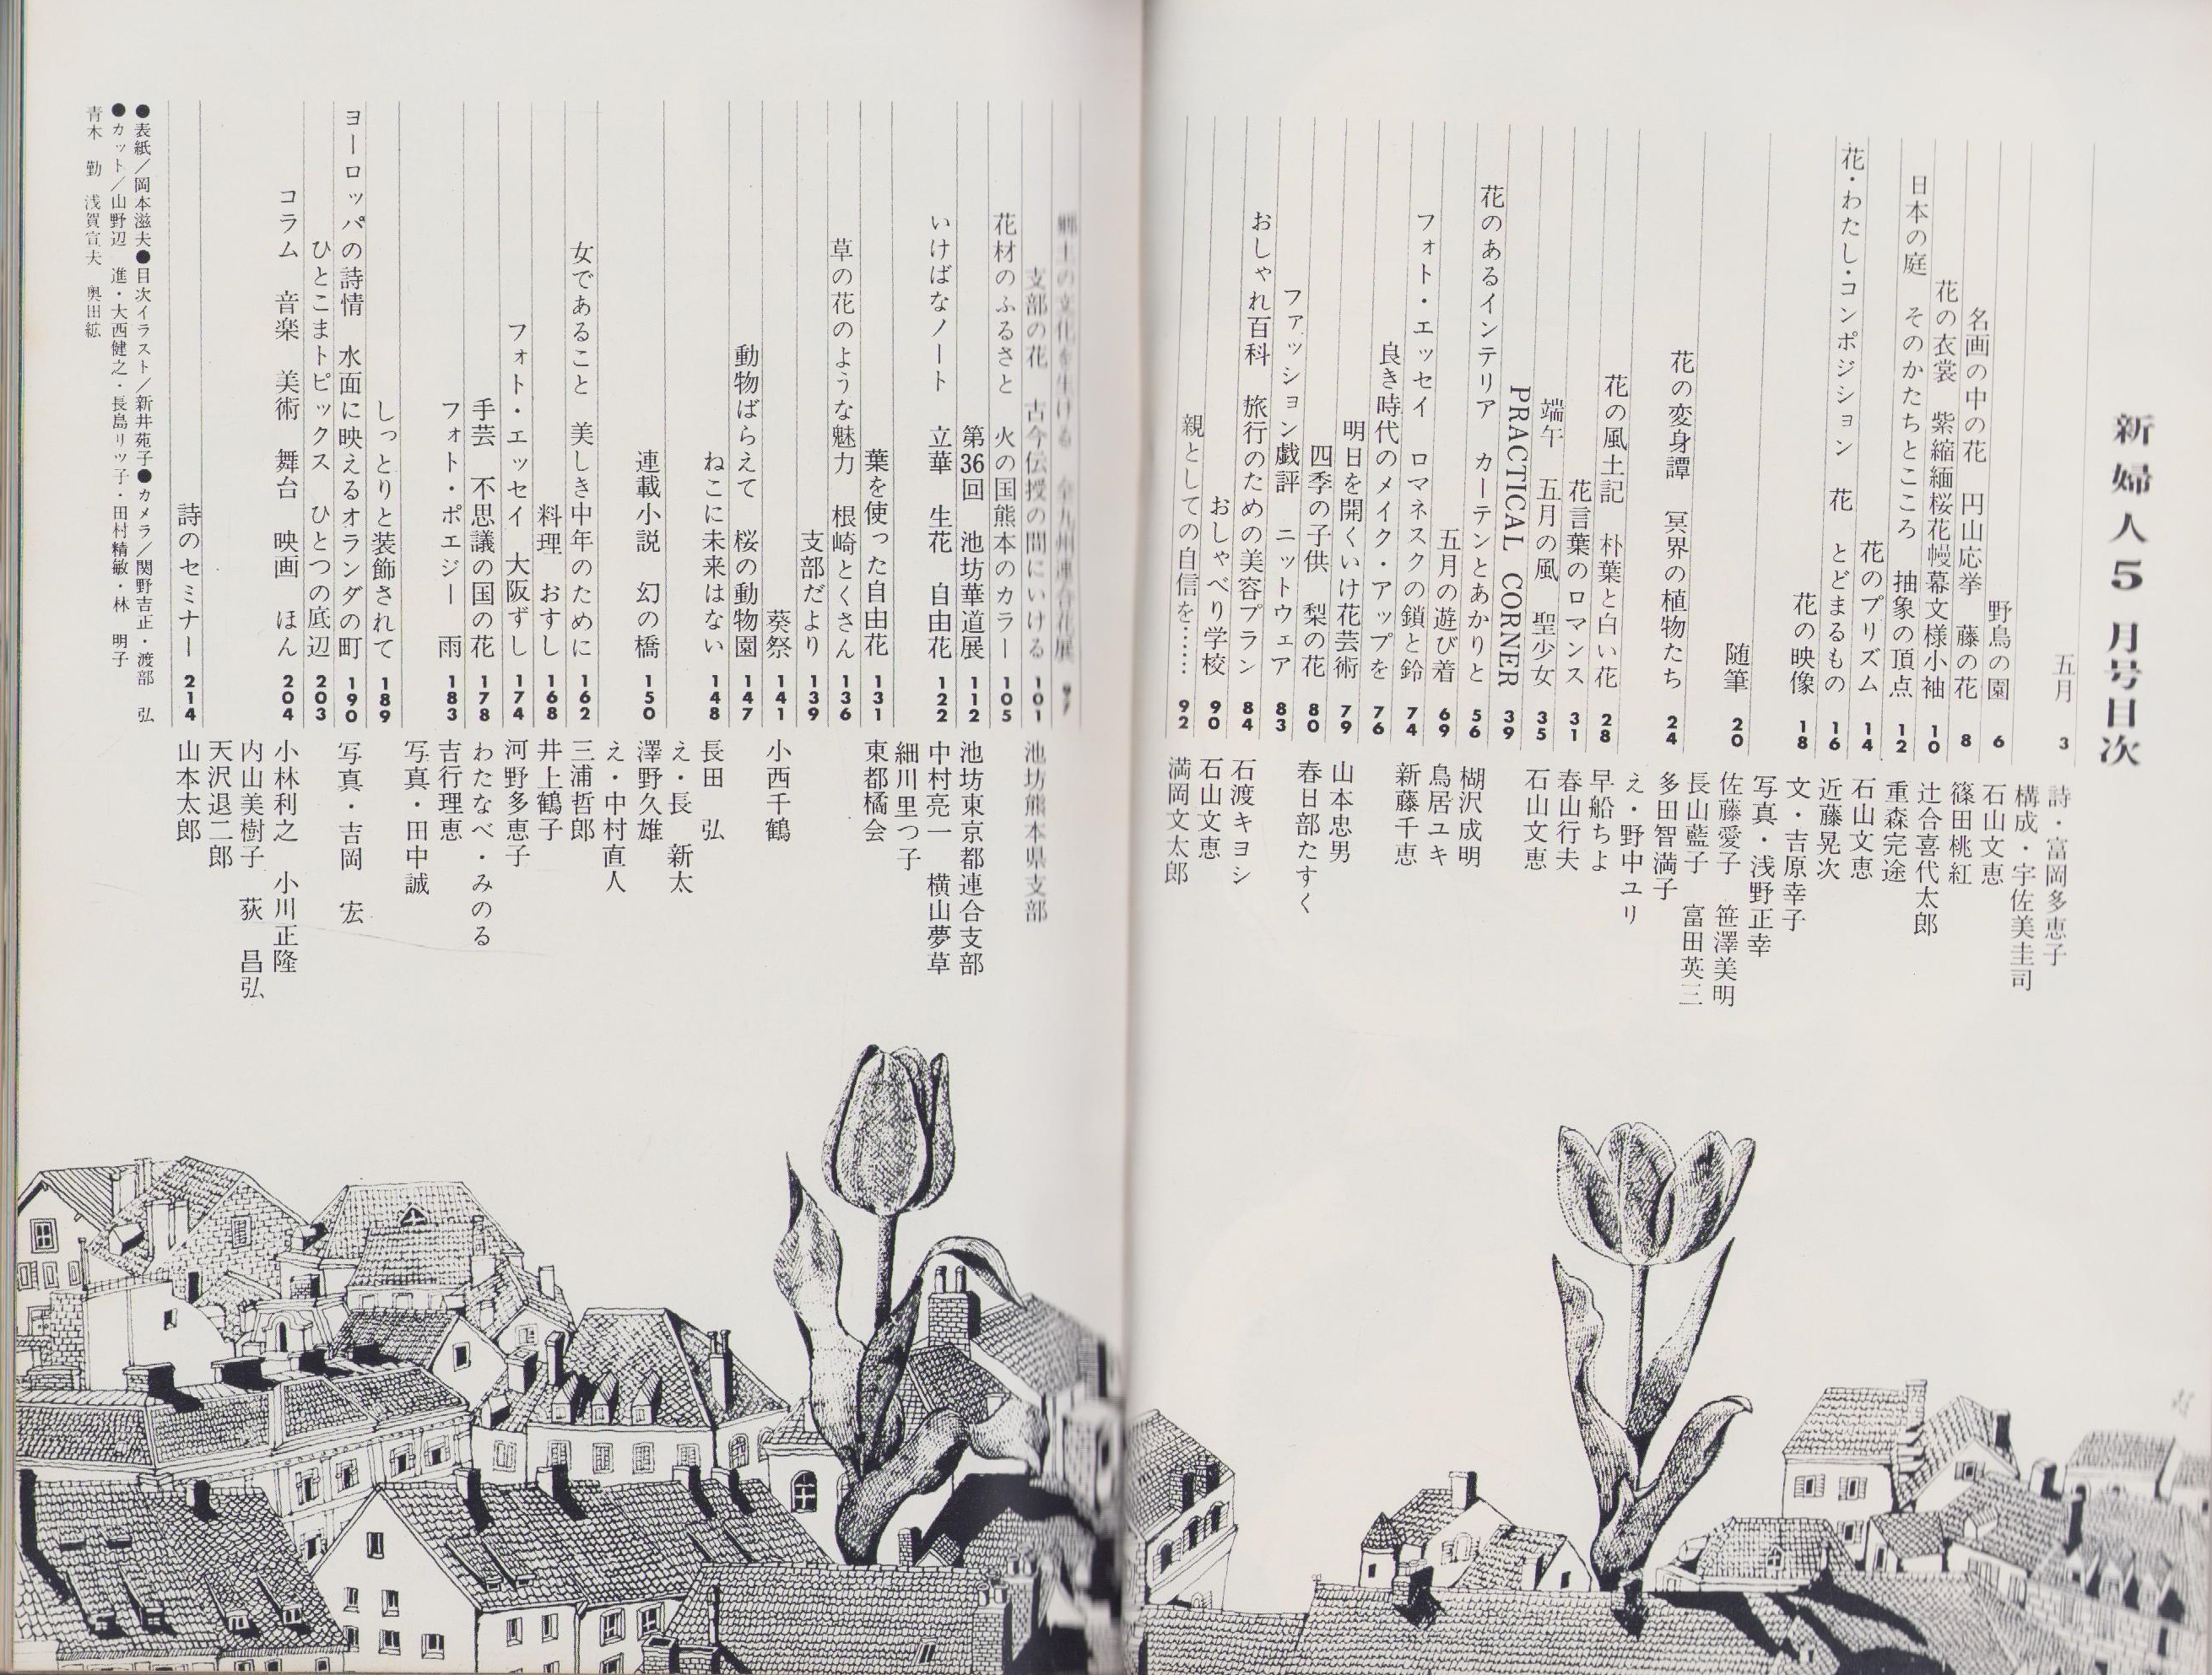 新婦人5月号目次
五月 3 詩・富岡多恵子
構成・宇佐美圭司
野鳥の園 6 石山文恵
名画の中の花 円山応挙 藤の花 8 篠田桃紅
花の衣裳 紫縮緬桜花幔幕文様小袖 10 辻合喜代太郎
日本の庭 そのかたちとこころ 抽象の頂点 12 重森完途
花のプリズム 14 石山文恵
花・わたし・コンポジション 花 とどまるもの 16 近藤晃次
花の映像 18 文・吉原幸子
写真・浅野正幸
随筆 20 佐藤愛子 笹澤美明
長山藍子 富田英三
花の変身譚 冥界の植物たち 24 多田智満子
え・野中ユリ
花の風土記 朴葉と白い花 28 早船ちよ
花言葉のロマンス 31 春山行夫
端午 五月の風 聖少女 35 石山文恵
PRACTICAL CORNER 39
花のあるインテリア カーテンとあかりと 56 楜沢成明
五月の遊び着 69 鳥居ユキ
フォト・エッセイ ロマネスクの鎖と鈴 74 新藤千恵
良き時代のメイク・アップを 76
明日を開くいけ花芸術 79 山本忠男
四季の子供 梨の花 80 春日部たすく
ファッション戯評 ニットウェア 83
おしゃれ百科 旅行のための美容プラン 84 石渡キヨシ
おしゃべり学校 90 石山文恵
親としての自信を…… 92 満岡文太郎
郷土の文化を生ける 全九州連合花展 97
支部の花 古今伝授の間にいける 101 池坊熊本県支部
花材のふるさと 火の国熊本のカラー 105
第36回 池坊華道展 112 池坊東京都連合支部
いけばなノート 立華 生花 自由花 122 中村亮一 横山夢草
細川里つ子
葉を使った自由花 131 東都橘会
草の花のような魅力 根崎とくさん 136
支部だより 139
葵祭 141 小西千鶴
動物ばらえて 桜の動物園 147
ねこに未来はない 148 長田 弘
え・長 新太
連載小説 幻の橋 150 澤野久雄
え・中村直人
女であること 美しき中年のために 162 三浦哲郎
料理 おすし 168 井上鶴子
フォト・エッセイ 大阪ずし 174 河野多恵子
手芸 不思議の国の花 178 わたなべ・みのる
フォト・ポエジー 雨 183 吉行理恵
写真・田中誠
しっとりと装飾されて 189
ヨーロッパの詩情 水面に映えるオランダの町 190 写真・吉岡 宏
ひとこまトピックス ひとつの底辺 203
コラム 音楽 美術 舞台 映画 ほん 204 小林利之 小川正隆
内山美樹子 荻 昌弘
天沢退二郎
詩のセミナー 214 山本太郎
●表紙/岡本滋夫●目次イラスト/新井苑子●カメラ/関野吉正・渡部 弘
●カット/山野辺 進・大西健之・長島リツ子・田村精敏・林 明子
青木 勤 浅賀宣夫 奥田絋